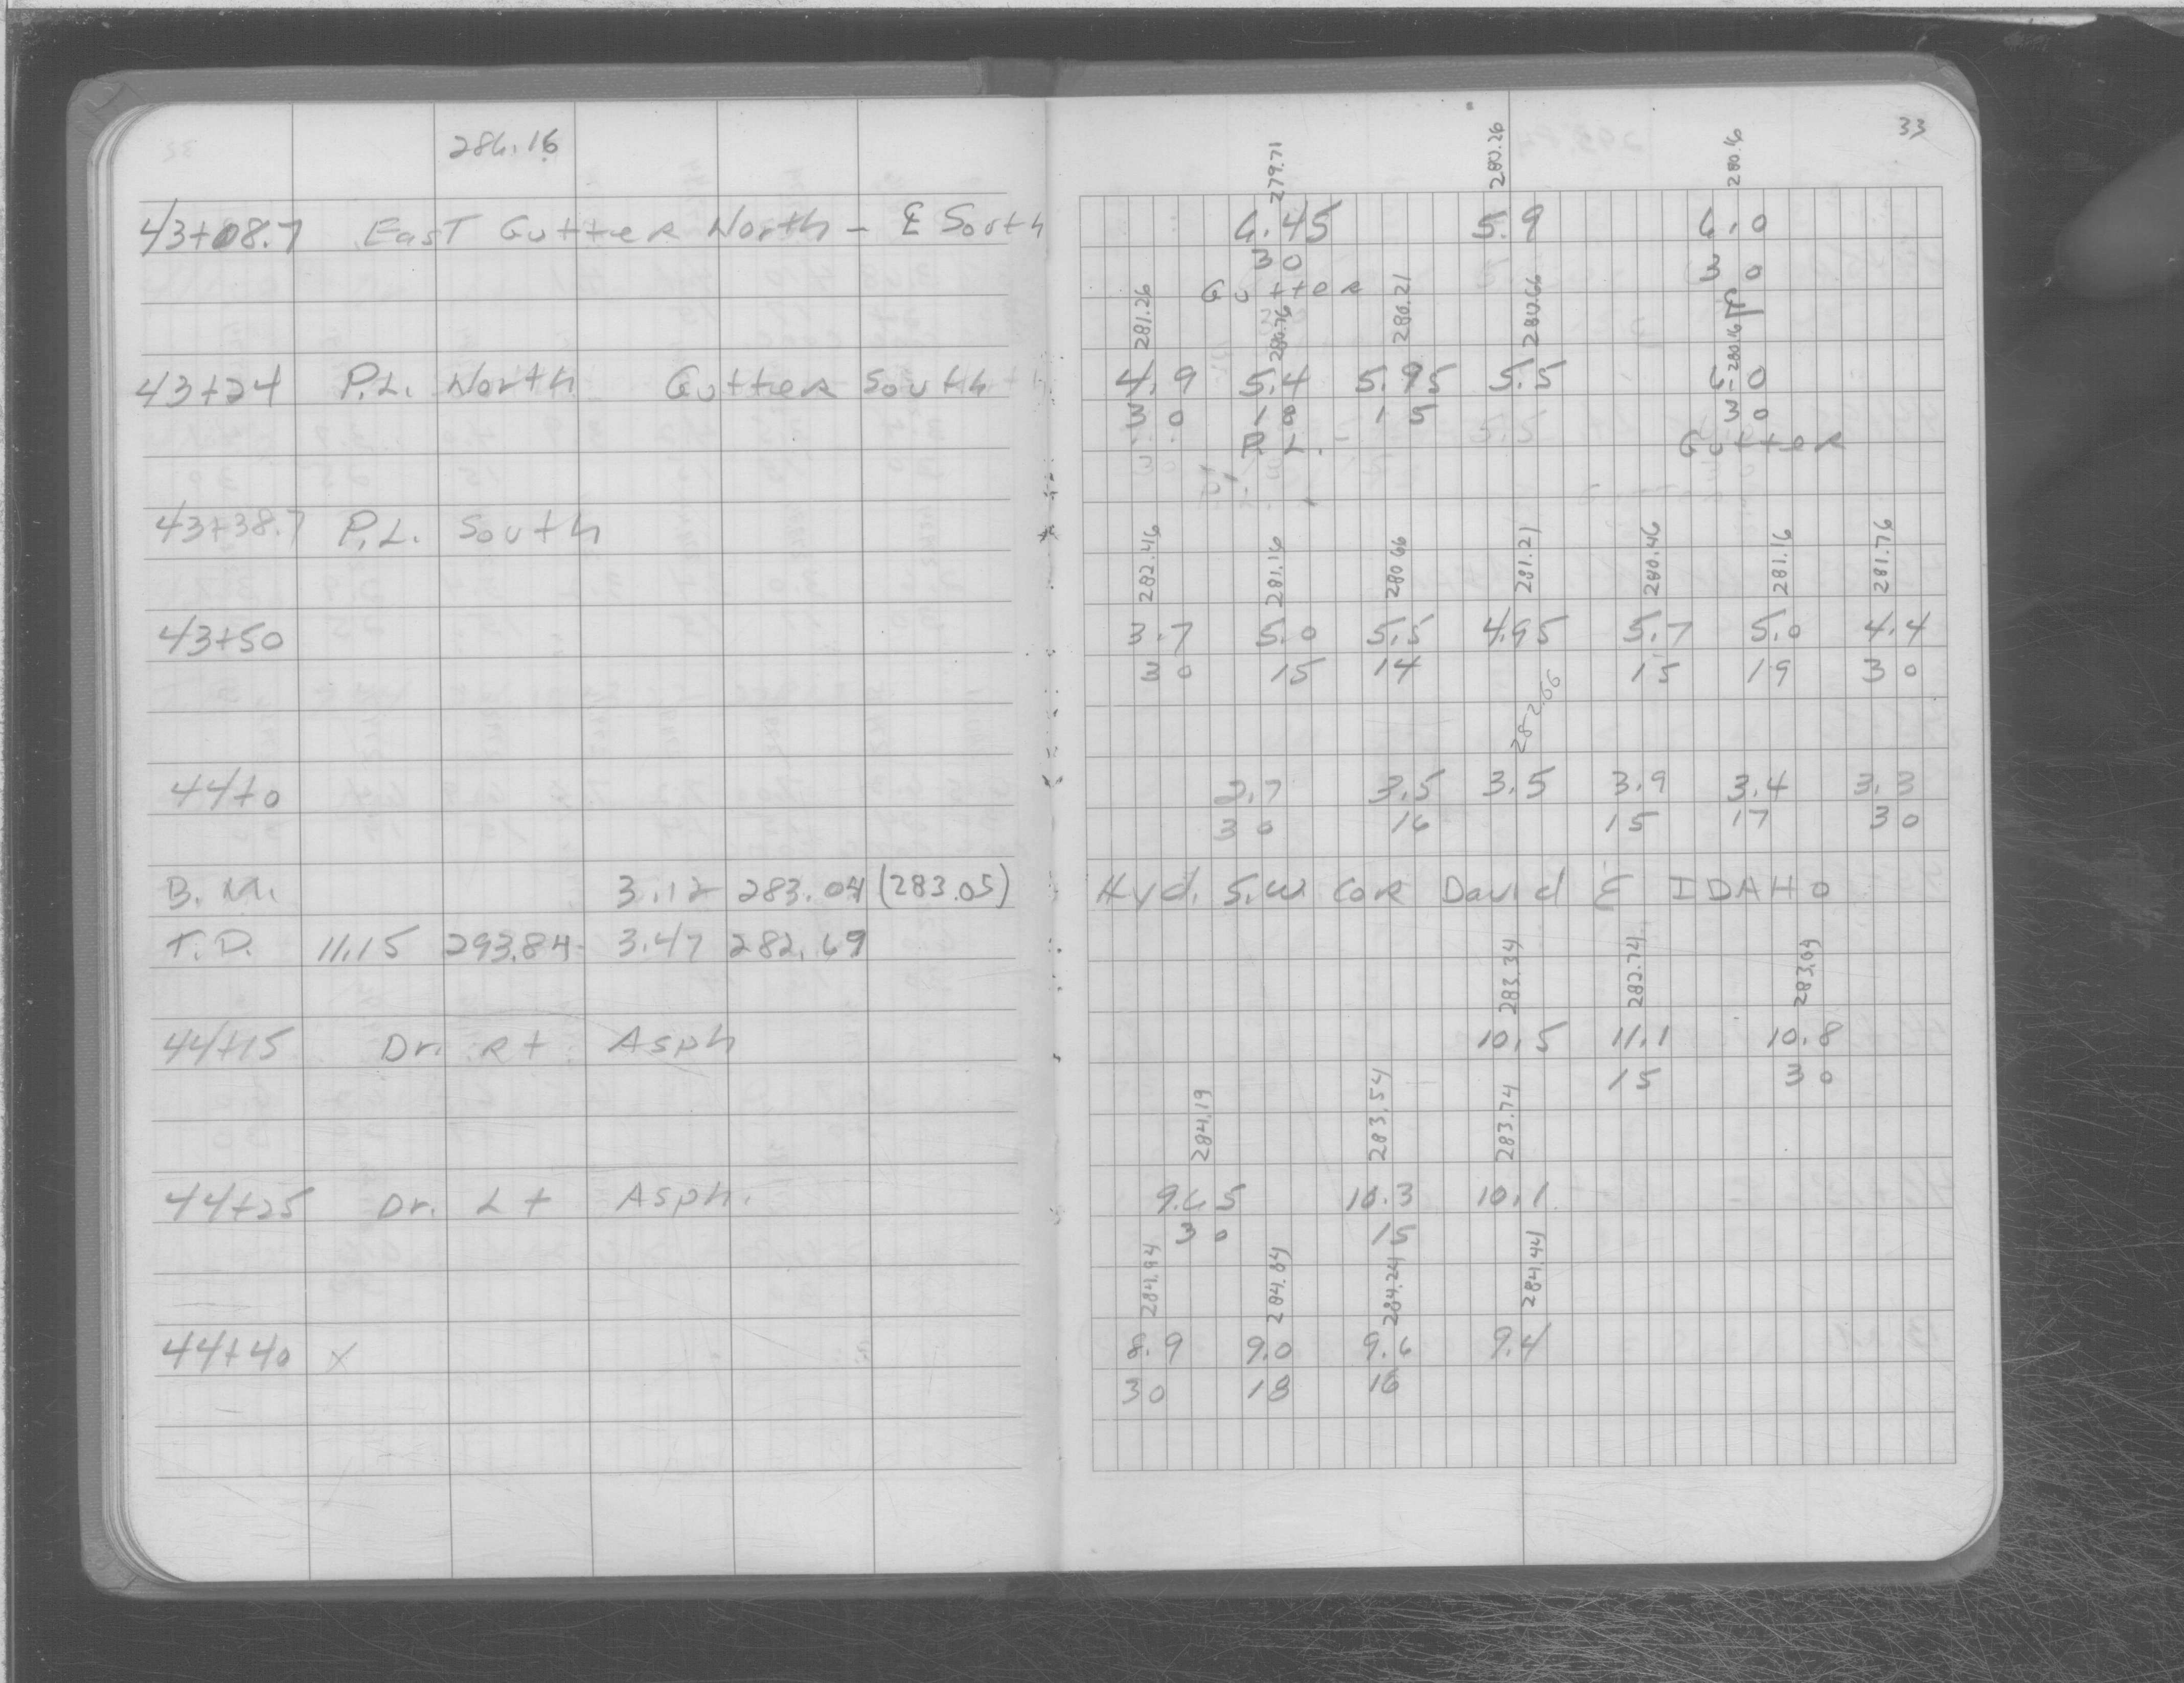 286.16
43+08.7 East Gutter North - ℄ South
43+24 P.L. North Gutter South
43+38.7 P.L. South
43+50
44+0
B.M. 3.12 283.04 (283.05)
T.P. 11.15 293.84 3.47 282.69
44+15 Dr. Rt Asph
44+25 Dr. Lt Asph.
44+40 X
33
279.71 280.26 280.16
6.45 5.9 6.0
30 30
Gutter ℄
281.26 280.76 280.21 280.66 280.16
4.9 5.4 5.95 5.5 6.0
30 18 15 30
P.L. Gutter
282.46 281.16 280.66 281.21 280.46 281.16 281.76
3.7 5.0 5.5 4.95 5.7 5.0 4.4
30 15 14 15 19 30
282.66
2.7 3.5 3.5 3.9 3.4 3.3
30 16 15 17 30
Hyd. S.W Cor David & IDAHO
283.34 282.74 283.04
10.5 11.1 10.8
15 30
284.19 283.54 283.74
9.65 10.3 10.1
30 15
284.94 284.84 284.24 284.44
8.9 9.0 9.6 9.4
30 18 16